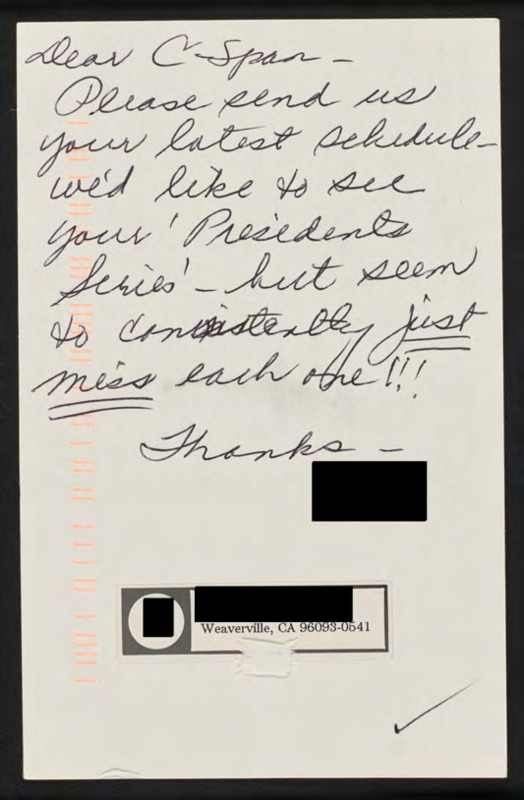 Dear C-Span -
Please send us
your latest schedule -
we'd like to see
your 'Presidents
Series' - but seem
to consistently just
miss each one!!!
Thanks -
Weaverville, CA 96093-0541